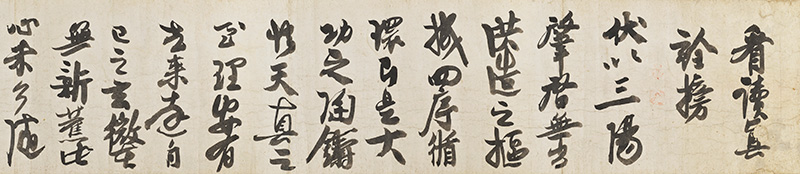 看讀真
詮榜
伏以三陽
肇啓無
洪造之樞
機四序循
環即是大
功之陶鑄
悟天真之
至理安有
去來達自
己之玄微
無新舊此
心未了隨